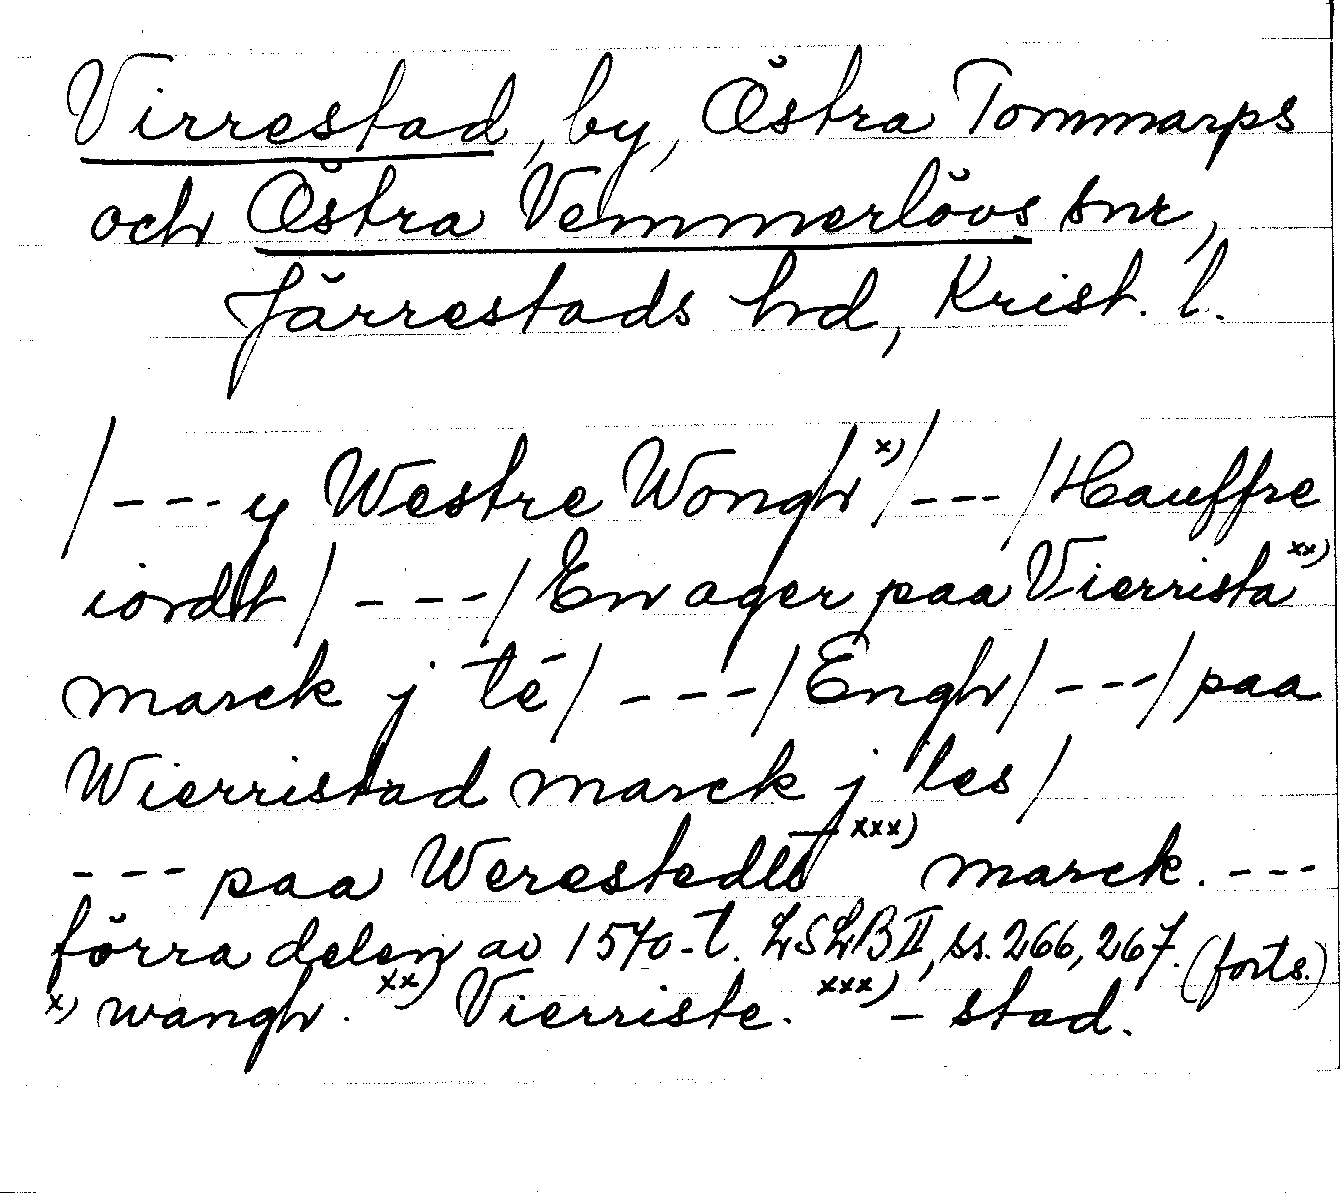 Virrestad, by, Östra Tommarps
och Östra Vemmerlövs snr,
Järrestads hd, Krist. l.
/---y Westre Wongh x)/---/Hauffre
iordtt/---/En ager paa Vierrista xx)
marck j té/---/Engh/---/paa
Wierristad marck j les/
---paa Werestedtt xxx) marck.---
förra delen av 1570-t. LSLB II, ss. 266, 267. (forts.)
x) wangh. xx) Vierriste. xxx) -stad.